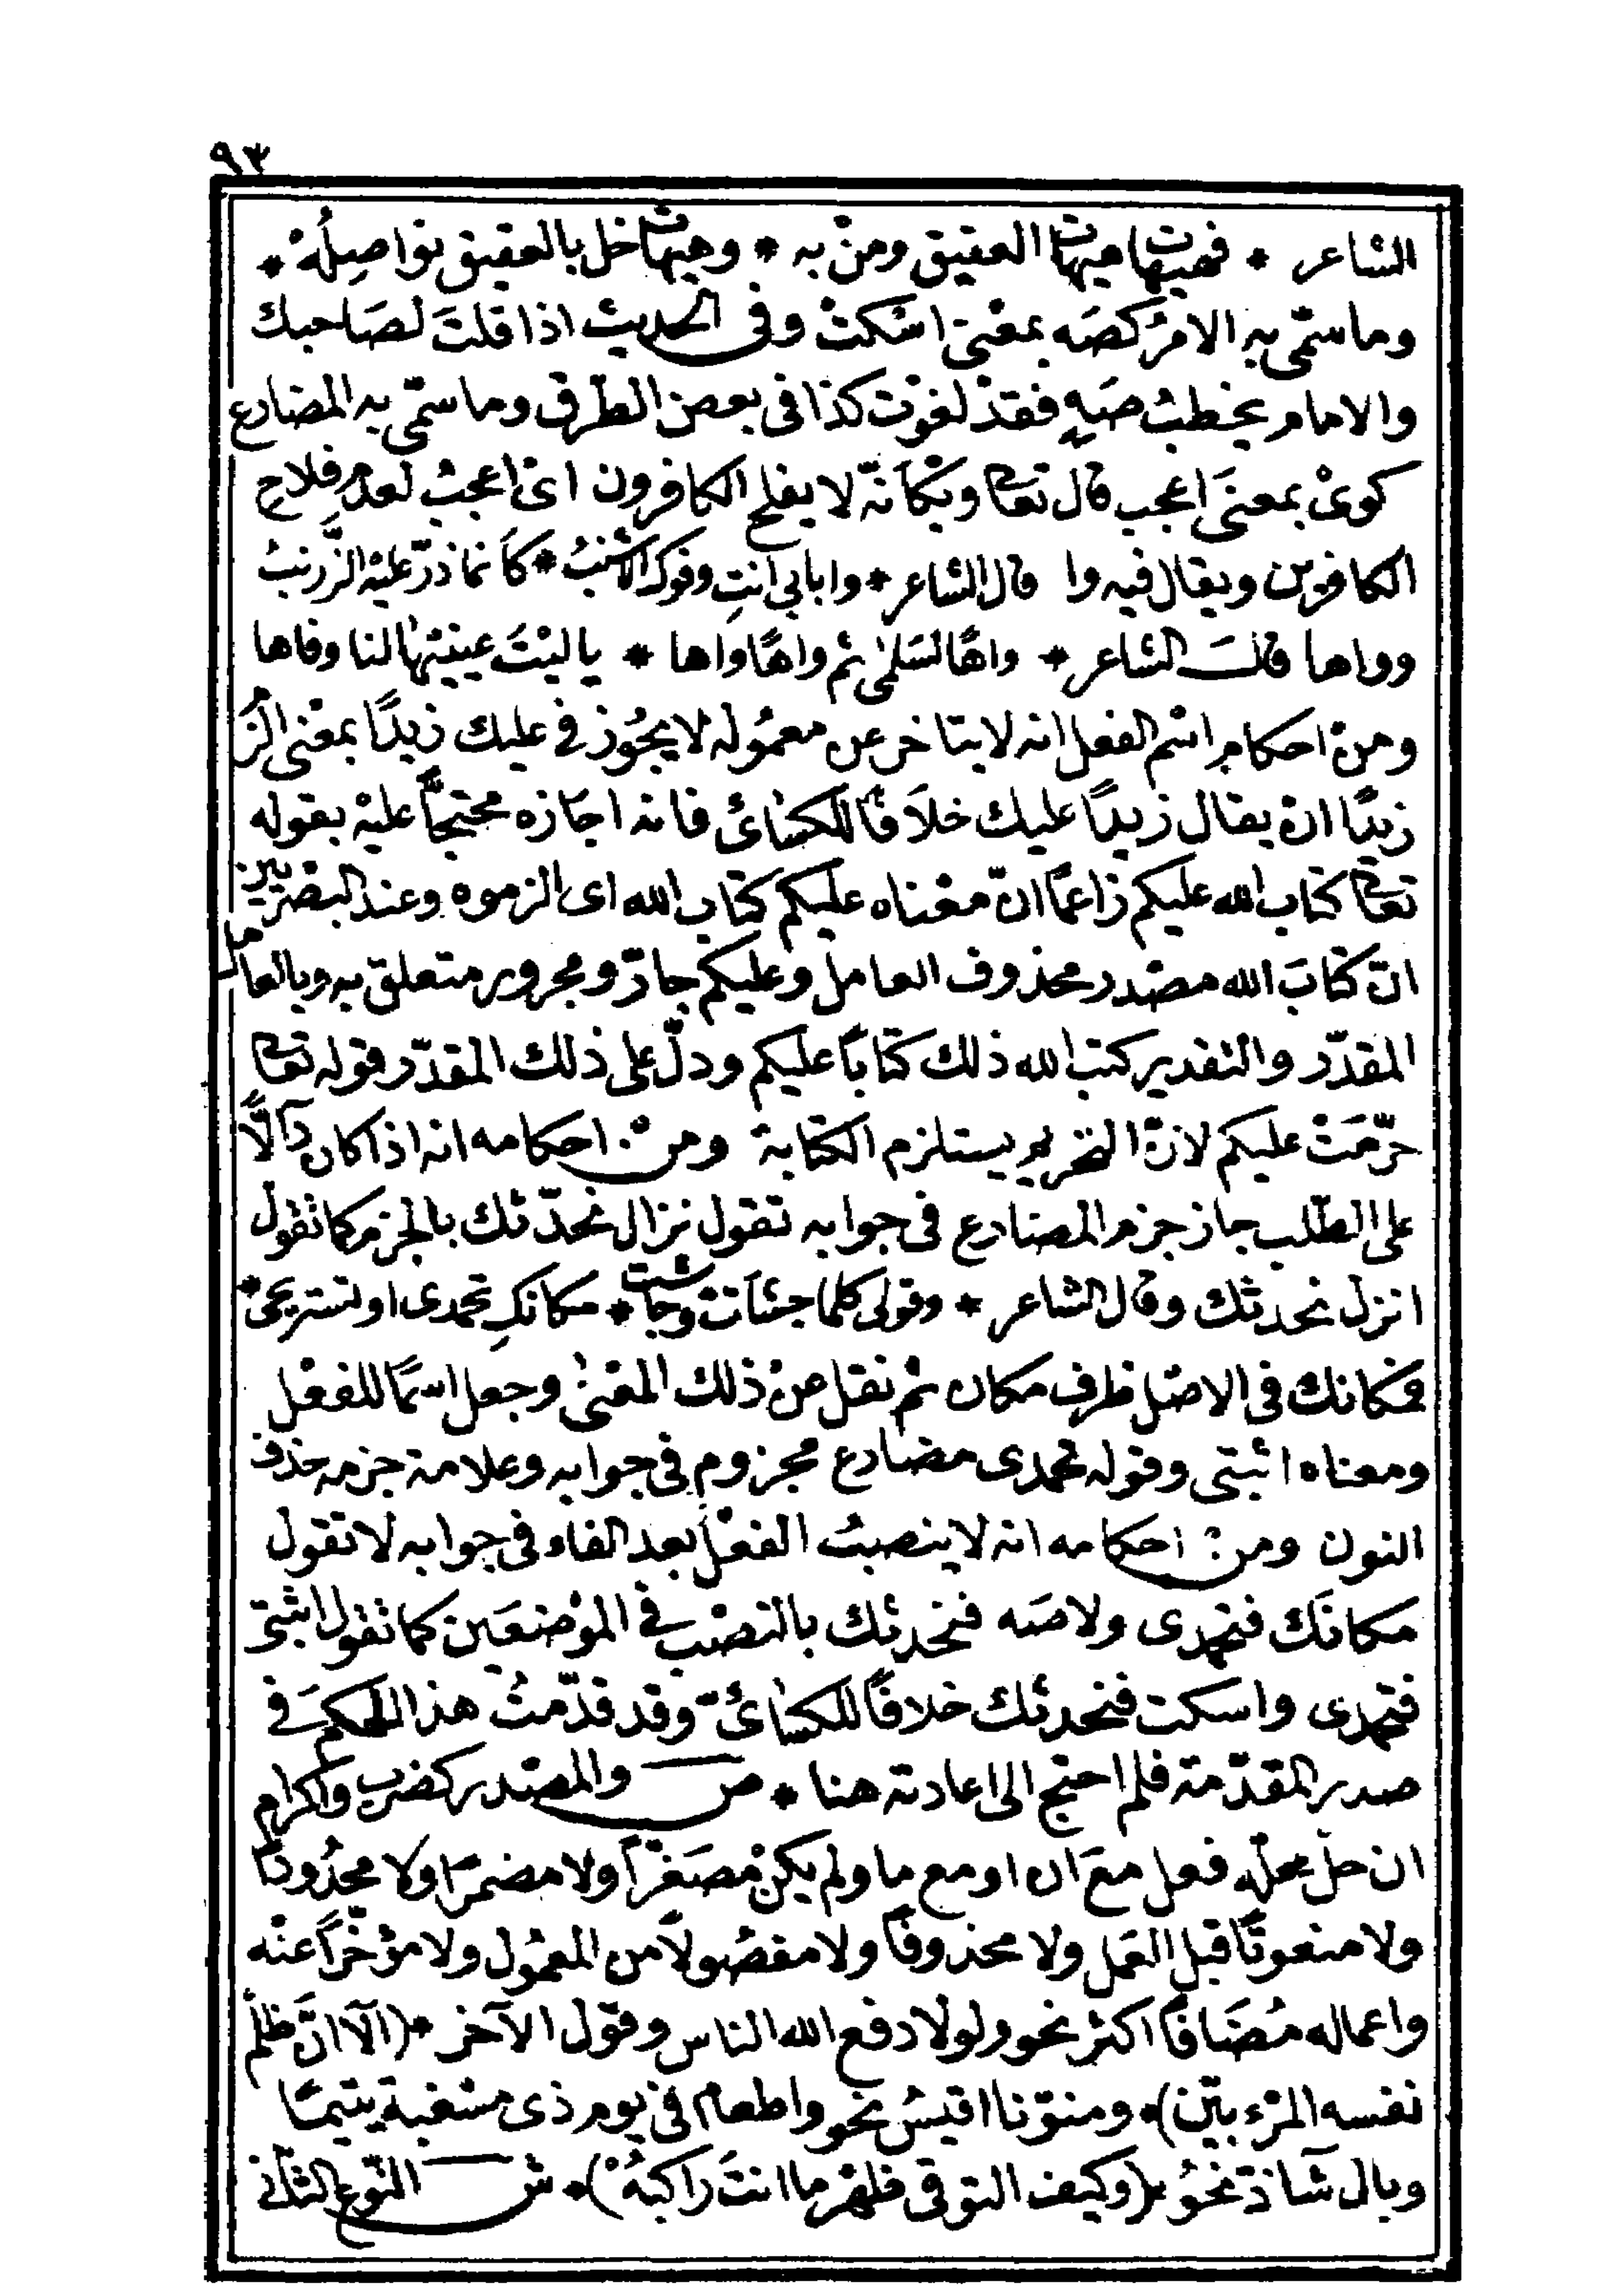 ٩٣
الشاعر * فهيهات هيهات العقيق ومنْ به * وهيهات خل بالعقيق نواصِلُهْ *
وما سمّى به الامرْ كصَه بمعْنى اسْكتْ وفى الحديث اذا قلتَ لصَاحبك
والامام يخطبُ صَهٍ فقدْ لغوْت كذا فى بعض الطرق وما سمّى به المضارع
كوىْ بمعنىَ اعجب قال تعالى ويْكأنّه لا يفلح الكافرون اىْ اعجبُ لعدم فلاحِ
الكافرين ويقال فيه وا قال الشاعر * وا بابى انتِ وفوك الاشنبُ * كأنما ذرّ عليْه الزَّرنبُ
وواها قال الشاعر * واهًا لسَلمٰى ثم واهًا واها * يا ليْتَ عينيْها لنا وفاها
ومنْ احكام اسْم الفعل انه لا يتاخر عن معموُله لا يجُوز فى عليك زيدًا بمعْنى الزَمْ
زيدًا انْ يقال زيدًا عليك خلاَفًا للكسَائى فانه اجَازه محتجاً عليْه بقوله
تعالى كتاب الله عليكم زاعمًا انّ معْناه عليكم كتاب الله اى الزموه وعند البصْريين
انّ كتابَ الله مصْدر محذوف العامل وعليكم جارّ ومجرور متعلق به وبالعامل
المقدّر والتقدير كتب الله ذلك كتابًا عليكم ودلّ على ذلك المقدّر قوله تعالى
حرّمَتْ عليكم لانّ التحريم يستلزم الكتابة ومنْ احكامه انه اذا كان دَالاًّ
على الطّلب جاز جزم المضارع فى جوابه تقول نزال نحدّثك بالجزم كما تقول
انزل نحدثك وقال الشاعر * وقولى كلما جشأتْ وجاشت * مكانكِ تحمدى او تستريحى *
فمكانك فى الاصْل ظرف مكان ثم نقل عنْ ذلك المعْنىٰ وجعل اسْمًا للفعْل
ومعناه اثبتى وقوله تحمدى مضارع مجزوم فى جوابه وعلامة جزمه حذف
النون ومنْ احكامه انه لا ينصبُ الفعْل بعد الفاء فى جوابه لا تقول
مكانَك فتحمدى ولا صَه فنحدثك بالنصْب فى الموْضعَين كما تقول اثبتى
فتحمدى واسكت فنحدثك خلافًا للكسَائىّ وقد قدّمتُ هذا الحكمَ فى
صدر المقدّمة فلم احتج الى اعادته هنا * ص والمصْدر كضرب واكرام
ان حلّ محلّه فعل معَ ان او مع ما ولم يكنْ مصَغرْاً ولا مضمرًا ولا محدُودًا
ولا منعوتًا قبل العَمل ولا محذوفًا ولا مفصُولاً من المعمُول ولا مؤخّراً عنْه
واعماله مُضَافًا اكثر نحو ولولا دفع الله الناس وقوْل الآخر * (اَلَا انَّ ظلْم
نفسه المرْء بيّن) * ومنوّنا اقيسُ نحو واطعام فى يَوم ذى مسْغبة يتيمًا
وبال شاذّ نحوُ * (وكيف التوقى ظهْر ما انتَ راكبُهْ) * ش النّوع الثّانى